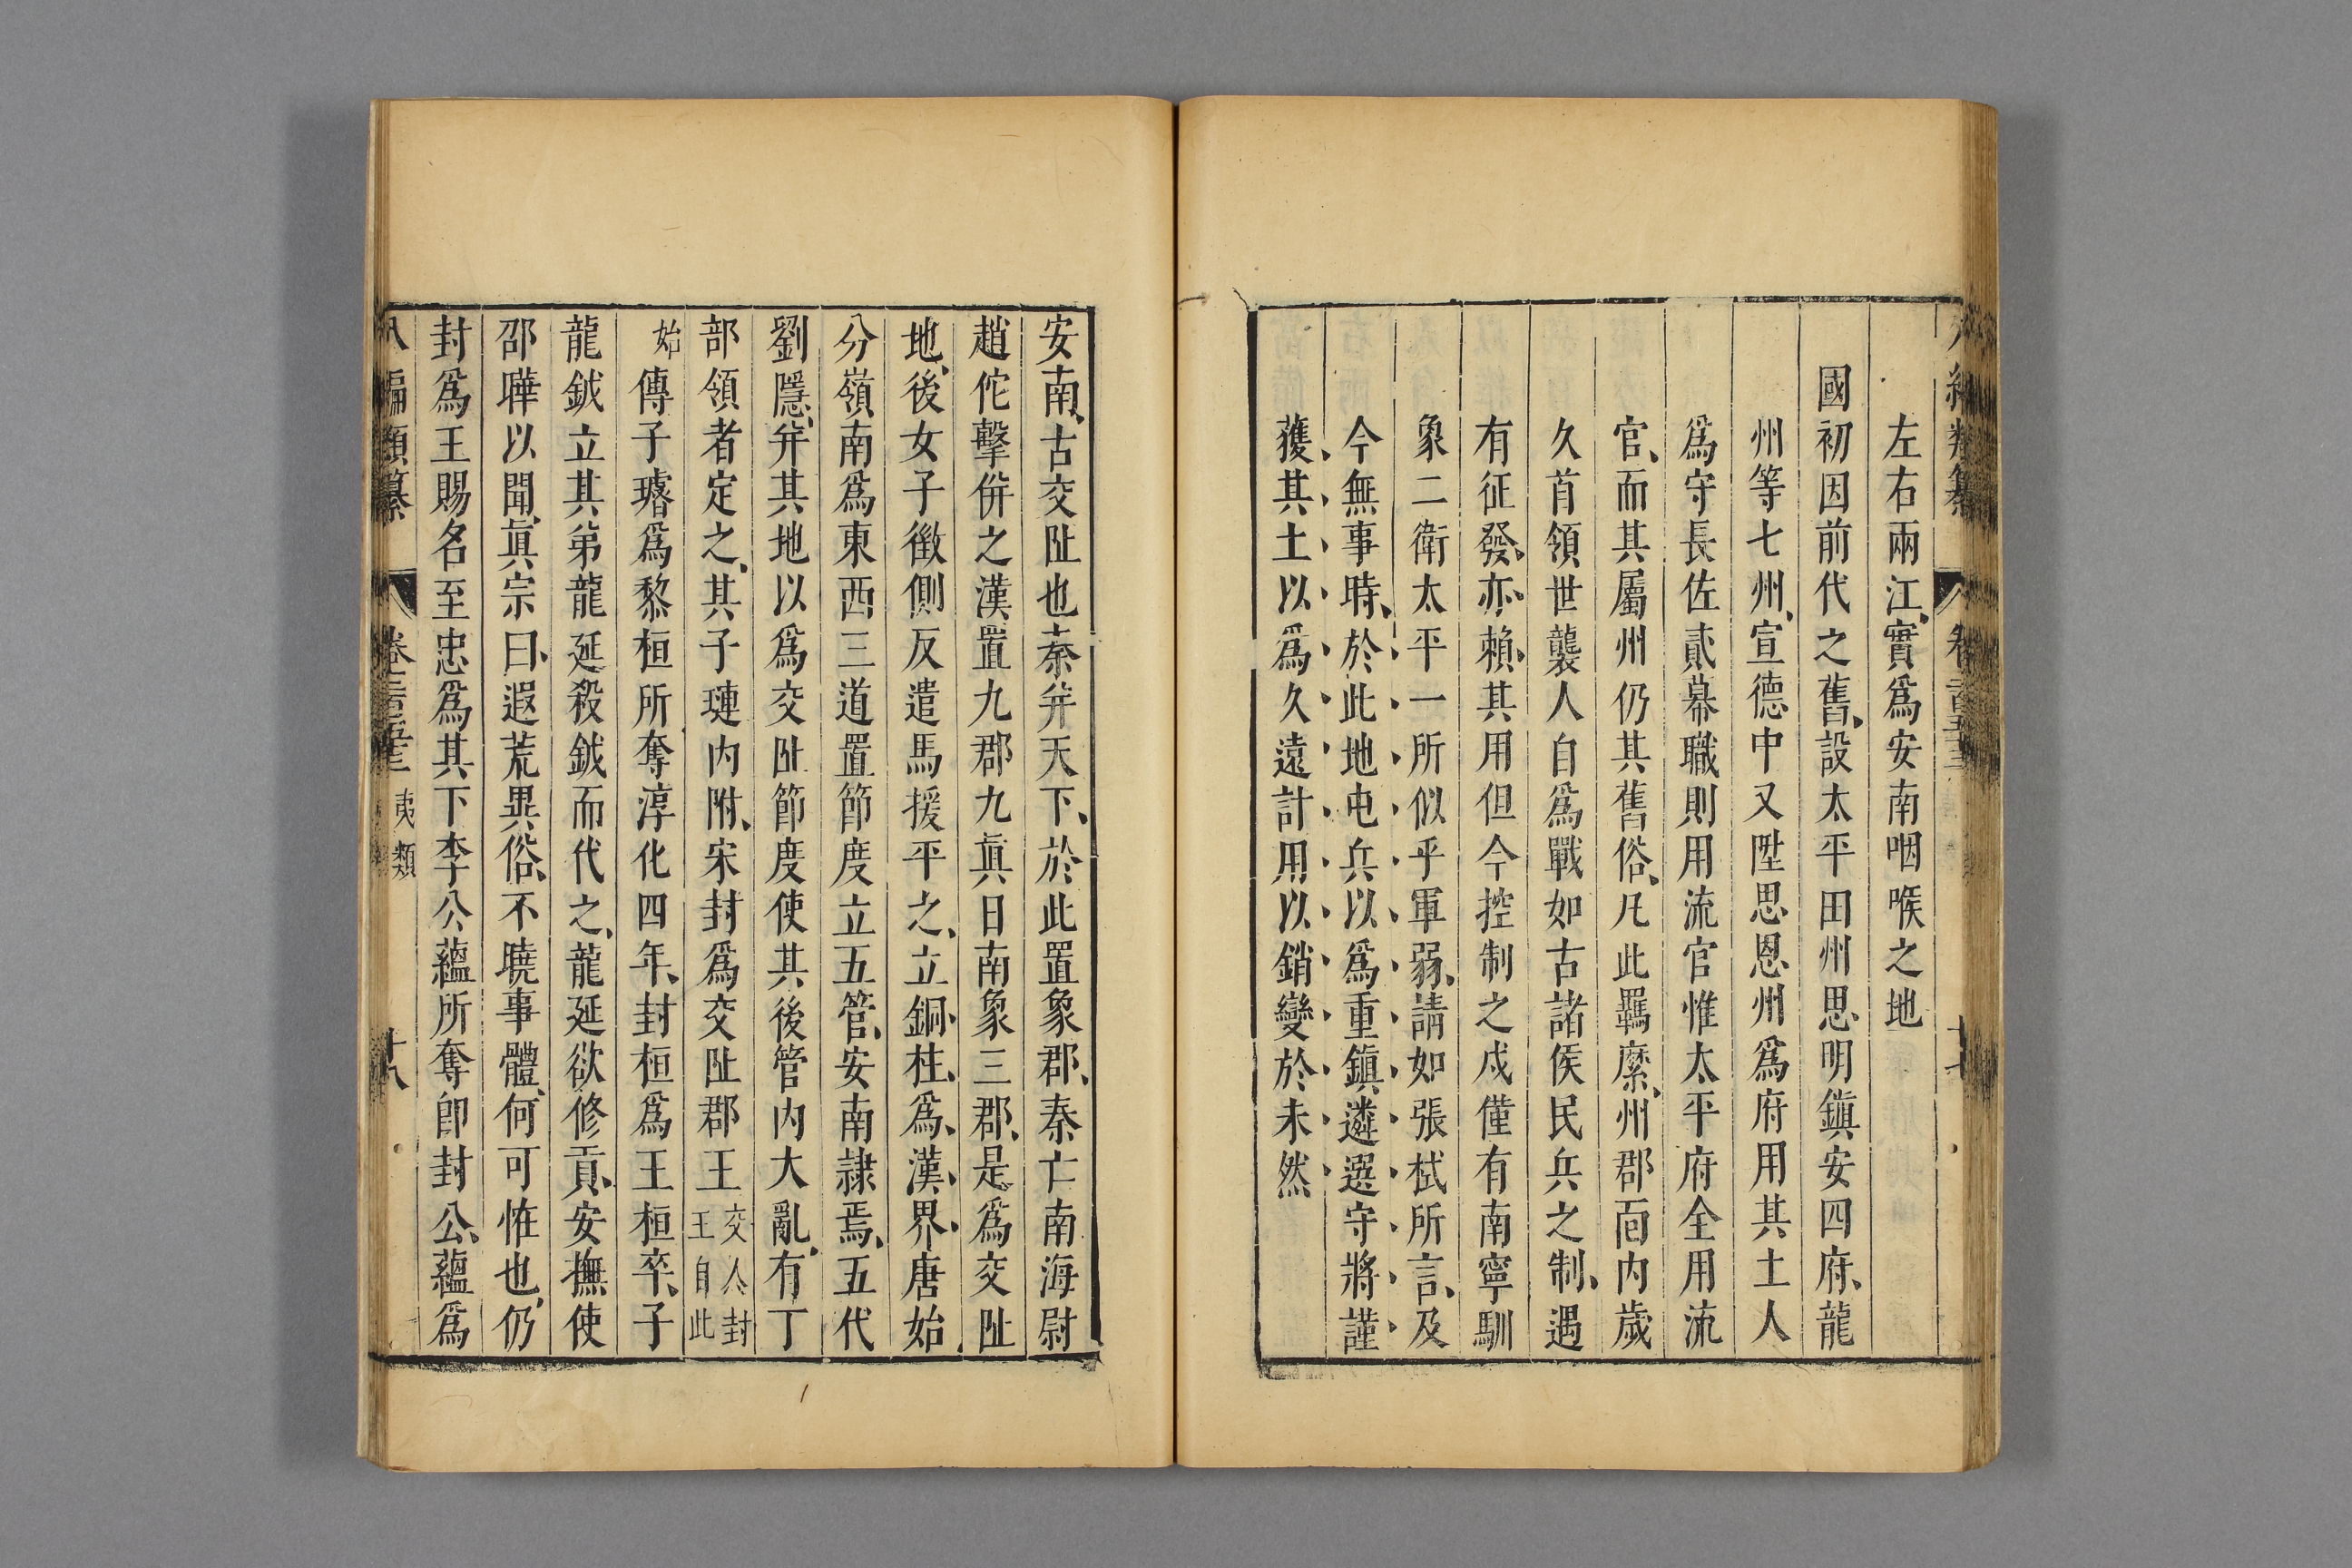 左右兩江、實爲安南咽喉之地
國初因前代之舊、設太平田州思明鎭安四府、龍
州等七州、宣德中又陞思恩州爲府用其土人
爲守長佐貳幕職則用流官惟太平府全用流
官、而其屬州仍其舊俗、凡此羈縻、州郡靣内歲
久首領世襲人自爲戰如古諸侯民兵之制、遇
有征發、亦賴其用但今控制之戍僅有南寧馴
象二衛太平一所似乎軍弱、請如張栻所言、及
今無事時、於此地屯兵以爲重鎭遴選守將謹
䕶其土以爲久遠計用以銷變於未然
安南、古交阯也秦幷天下、於此置象郡、秦亡南海尉
趙佗擊併之漢置九郡九眞日南象三郡、是爲交阯
地、後女子徵側反遣馬援平之、立銅柱、爲漢界、唐始
分嶺南爲東西三道置節度立五管、安南隷焉、五代
劉隱、幷其地以爲交阯節度使其後管内大亂、有丁
部領者定之、其子璉内附、宋封爲交阯郡王交人封王自此
始傳子璿爲黎桓所奪淳化四年、封桓爲王桓卒、子
龍鉞立其弟龍延殺鉞而代之、龍延欲修貢、安撫使
邵曄以聞、眞宗曰、遐荒異俗、不曉事體、何可恠也、仍
封爲王賜名至忠爲其下李公蘊所奪卽封公、蘊爲
八編類纂 卷二百五十三 夷類 十八